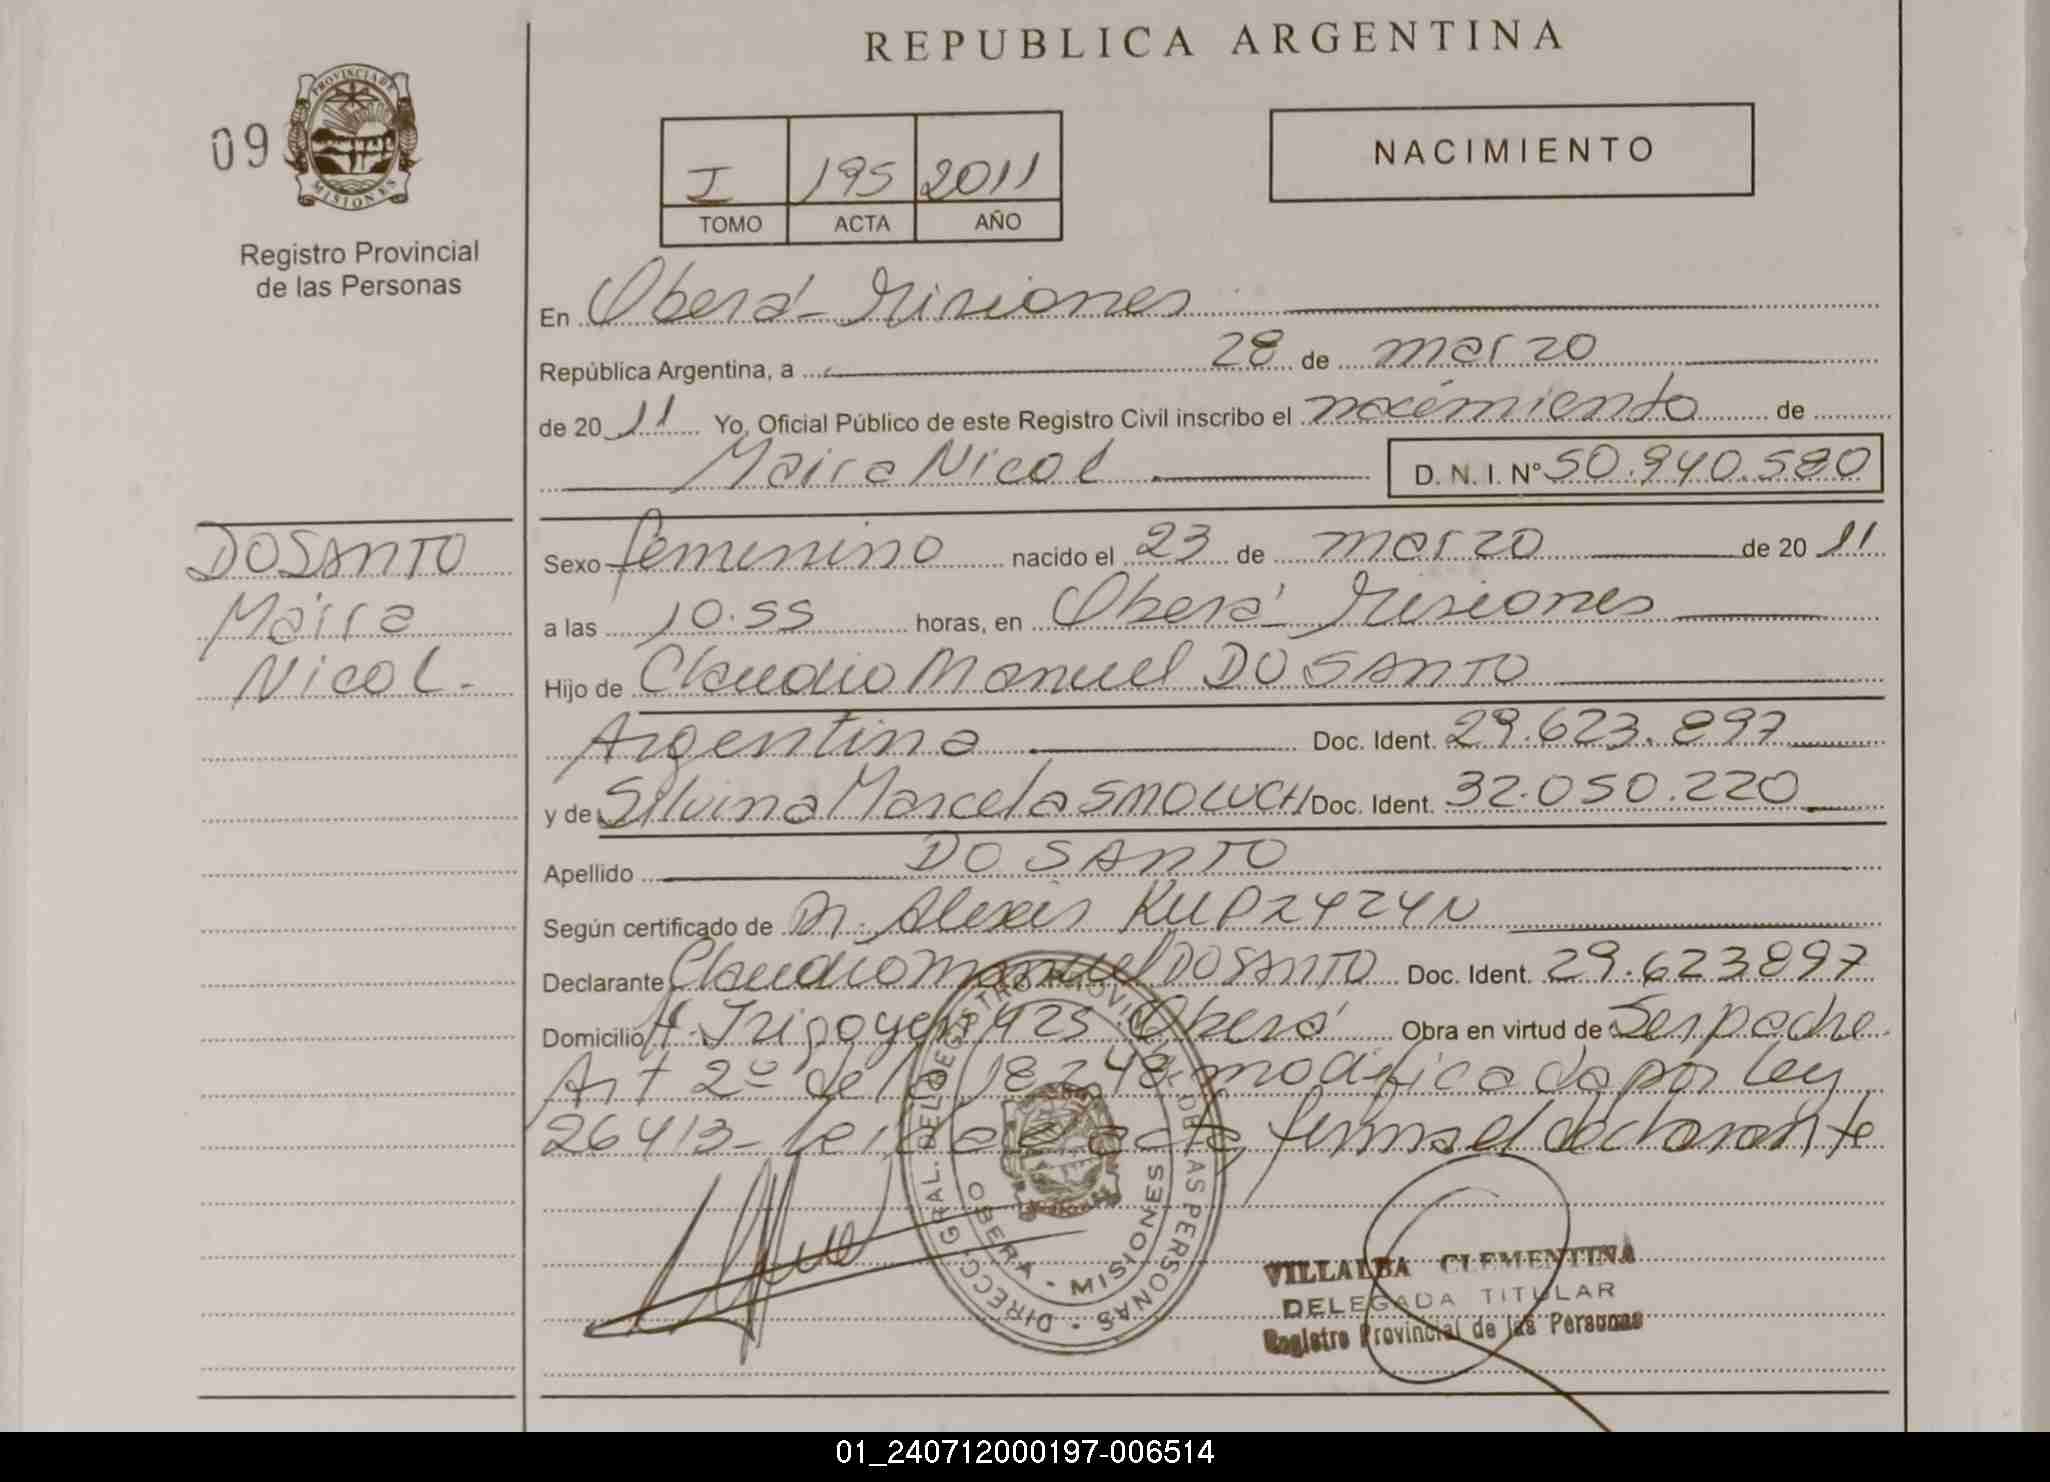 REPUBLICA ARGENTINA
09
PROVINCIA DE
MISIONES
Registro Provincial
de las Personas
I 195 2011
TOMO ACTA AÑO
NACIMIENTO
En Oberá - Misiones
República Argentina, a 28 de marzo
de 2011 Yo, Oficial Público de este Registro Civil inscribo el nacimiento de
Maira Nicol D. N. I. Nº 50.940.580
DO SANTO
Maira
Nicol.
Sexo femenino nacido el 23 de marzo de 2011
a las 10.55 horas, en Oberá Misiones
Hijo de Claudio Manuel DO SANTO
Argentina Doc. Ident. 29.623.897
y de Silvina Marcela SMOLUCH Doc. Ident. 32.050.220
Apellido DO SANTO
Según certificado de Dr. Alexis
Declarante Claudio Manuel DO SANTO Doc. Ident. 29.623897
Domicilio H. Irigoyen 925 Oberá Obra en virtud de Ser padre
Art 2º de la 18248 modificada por ley
26413- Leida el acta, firma el declarante
DIRECC. GRAL. DEL REGISTRO PROVINCIAL DE LAS PERSONAS
OBERA - MISIONES
VILLALBA CLEMENTINA
DELEGADA TITULAR
Registro Provincial de las Personas
01_240712000197-006514